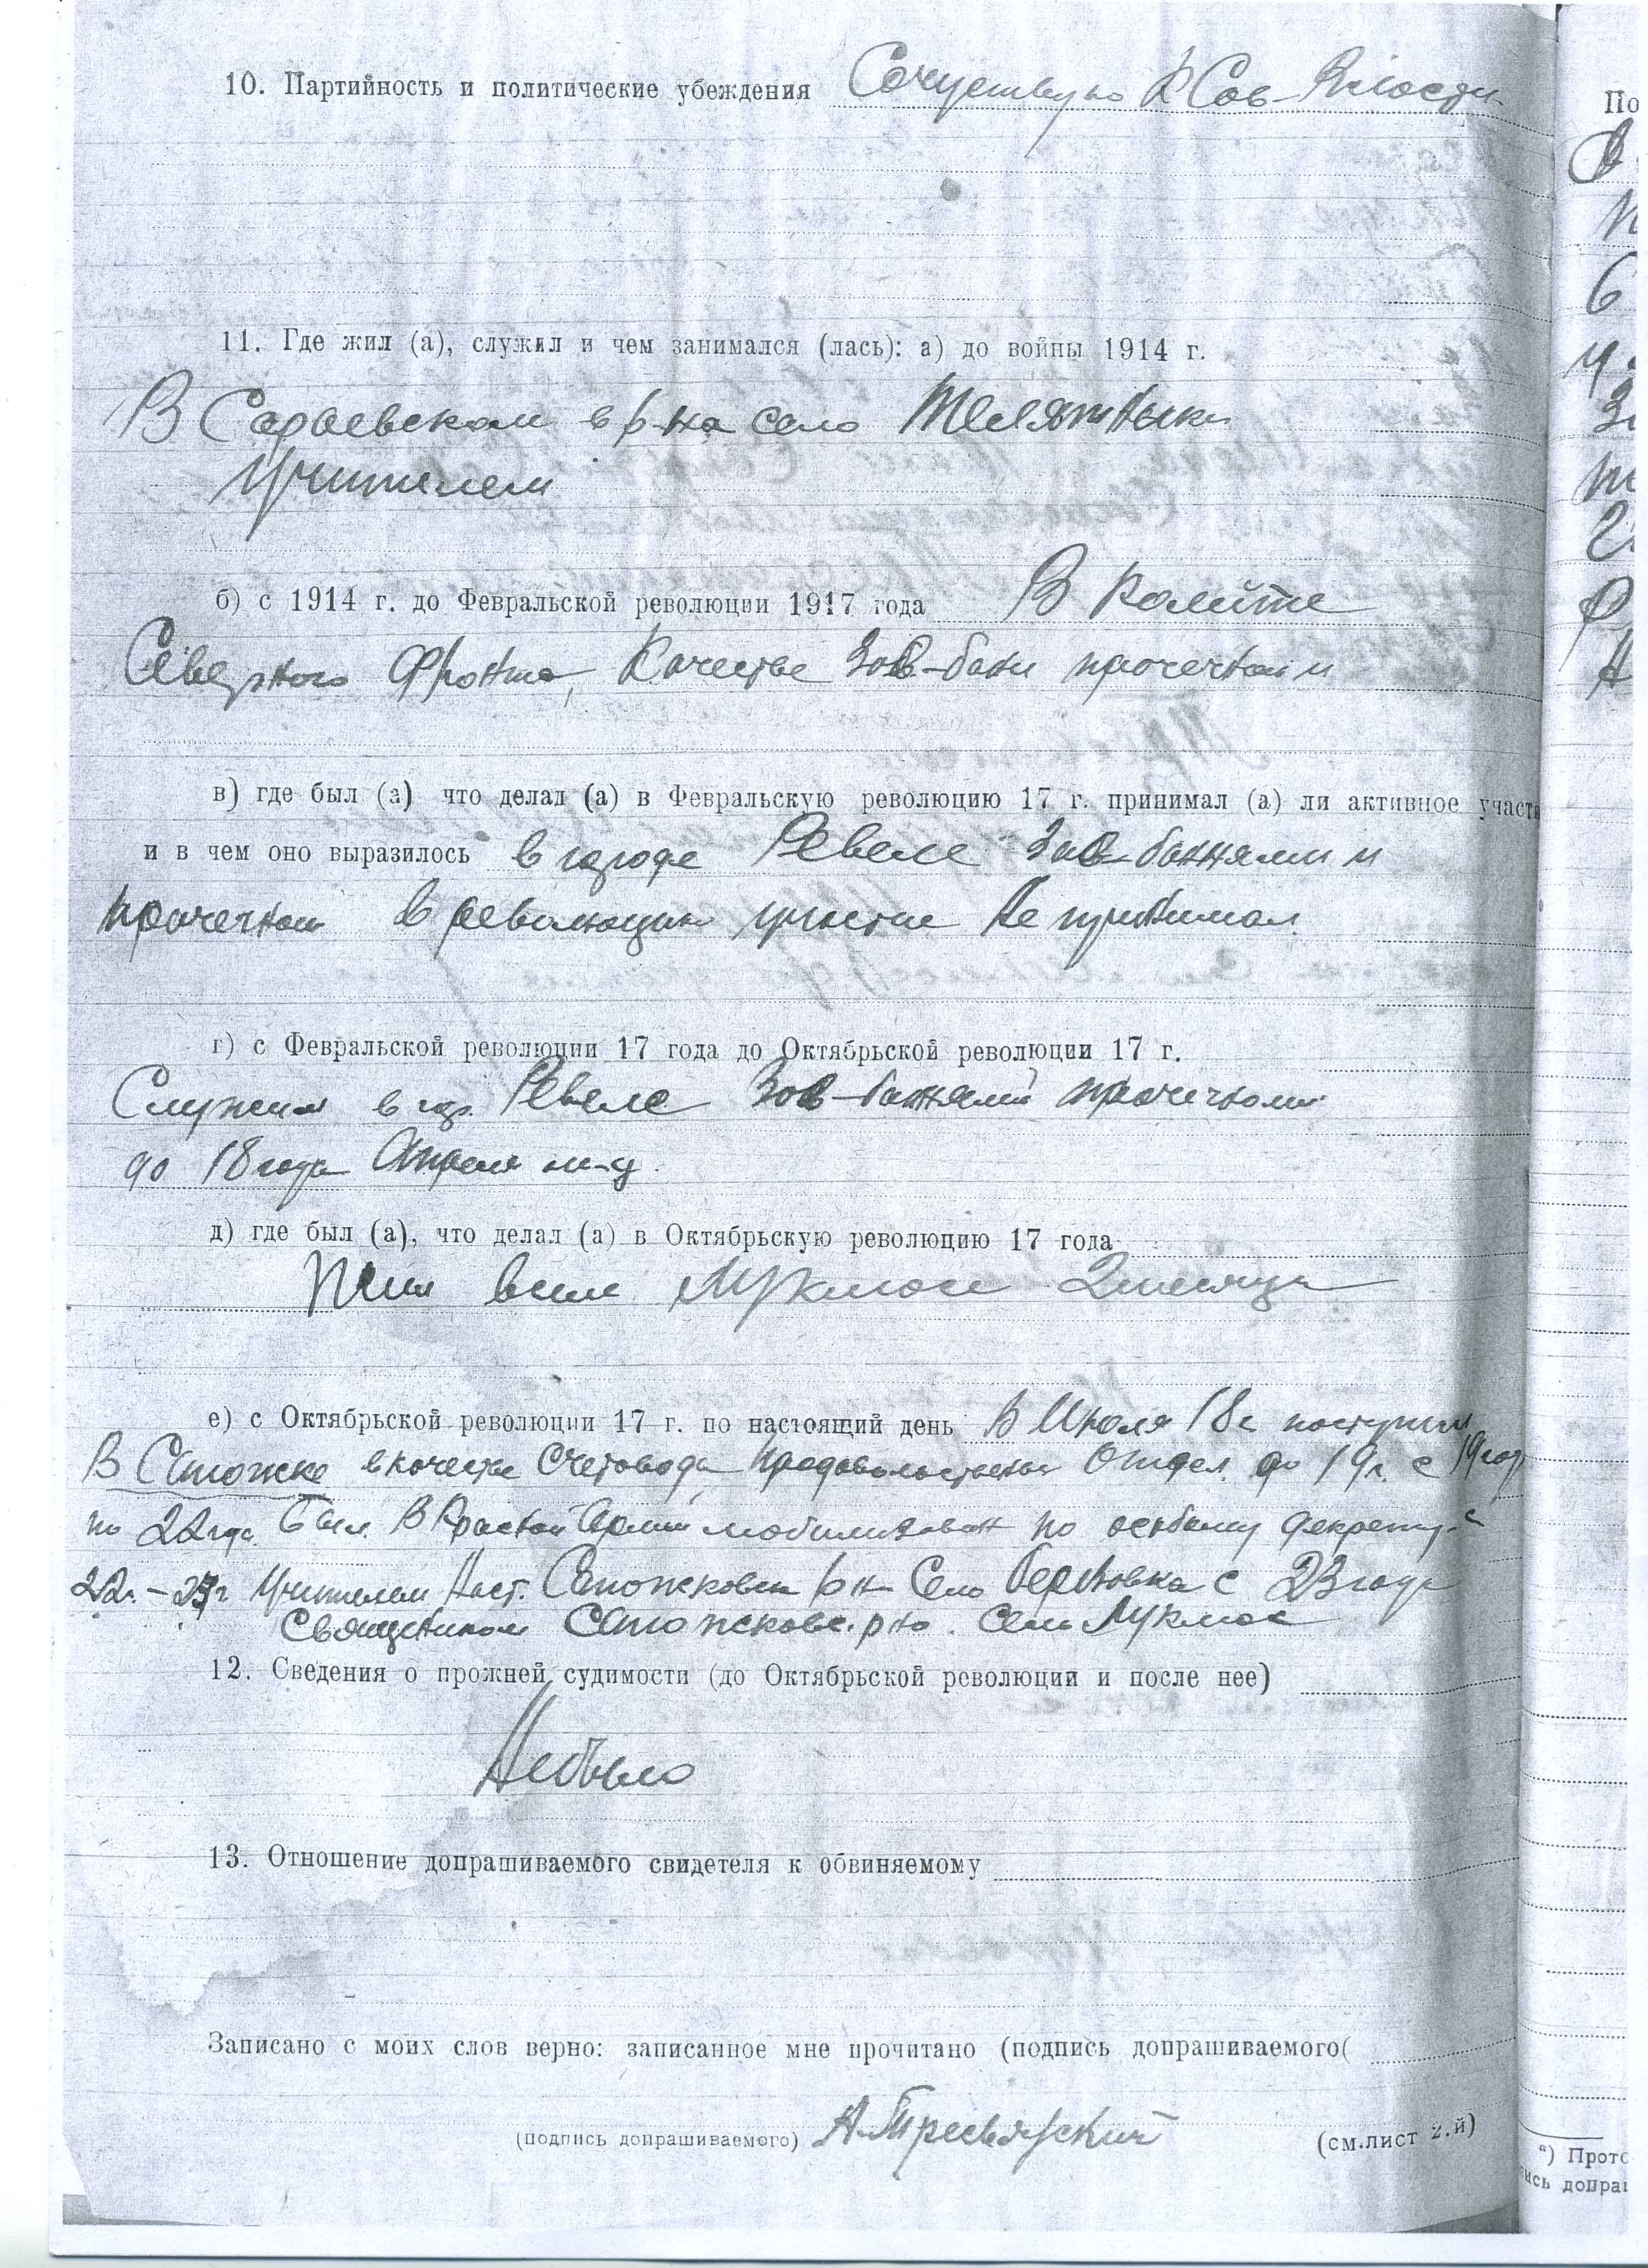 10. Партийность и политические убеждения Сочуствую к Сов-Власти
11. Где жил (а), служил и чем занимался (лась): а) до войны 1914 г.
В Сараевском р-на село
Учителем
б) с 1914 г. до Февральской революции 1917 года В комите
Северного Фронта, Качестве Зав-бани прачечной
в) где был (а) что делал (а) в Февральскую революцию 17 г. принимал (а) ли активное участи
и в чем оно выразилось в городе Ревеле Зав-банями и
прачечной в революции участие не принимал.
г) с Февральской революции 17 года до Октябрьской революции 17 г.
Служил в гор. Ревеле Зав-банями прачечной
до 18 года Апреля м-ц.
д) где был (а), что делал (а) в Октябрьскую революцию 17 года
Жил в селе Мукмосе 2 месяца
е) с Октябрьской революции 17 г. по настоящий день В Июля 18 г. поступил
В Сапожке в качестве Счетовода Продовольствен Отдел. до 19 г. с 19 год
по 22 год. Был В Красной Армии мобилизован по особому декрету. с
22 г. – 23 г Учителем Сапожковск р-н Село Березовка с 23 года
Священником Сапожсковс. р-но. Село
12. Сведения о прожней судимости (до Октябрьской революции и после нее)
Небыло
13. Отношение допрашиваемого свидетеля к обвиняемому
Записано с моих слов верно: записанное мне прочитано (подпись допрашиваемого(
(подпись допрашиваемого) А. Тресвятский (см.лист 2.й)
По
*) Прото
ись допраш